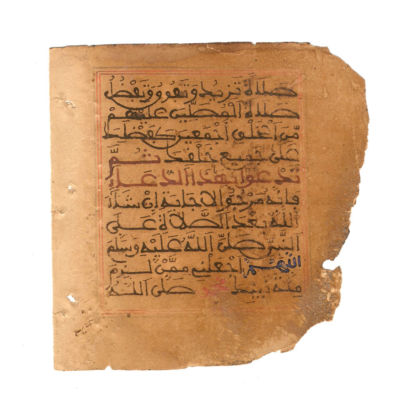 صَلَاةً تَزِيدُ وَتَفُوقُ وَتَفْضُلُ
صَلَاةَ الْمُصَلِّينَ عَلَيْهِمْ
مِّنَ الْخَلْقِ أَجْمَعِينَ كَفَضْلِكَ
عَلَى جَمِيعِ خَلْقِكَ ثُمَّ
تَدْعُوا بِهَذَا الدُّعَاءِ
فَإِنَّهُ مَرْجُوُّ الْإِجَابَةِ إِنْ شَاءَ
اللَّهُ بَعْدَ الصَّلَاةِ عَلَى
النَّبِيِّ صَلَّى اللَّهُ عَلَيْهِ وَسَلَّمَ
اللَّهُمَّ اجْعَلْنِي مِمَّنْ لَزِمَ
مِلَّةَ نَبِيِّكَ صَلَّى اللَّهُ